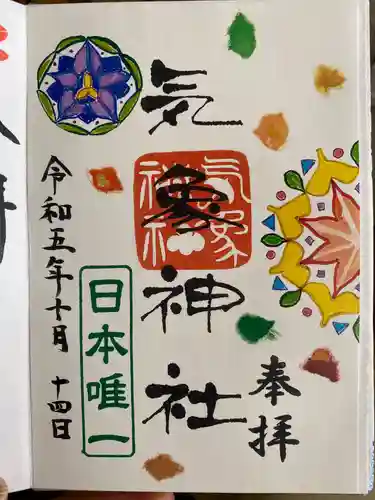 奉拝
気象神社
気象
神社
日本唯一
令和五年十月十四日